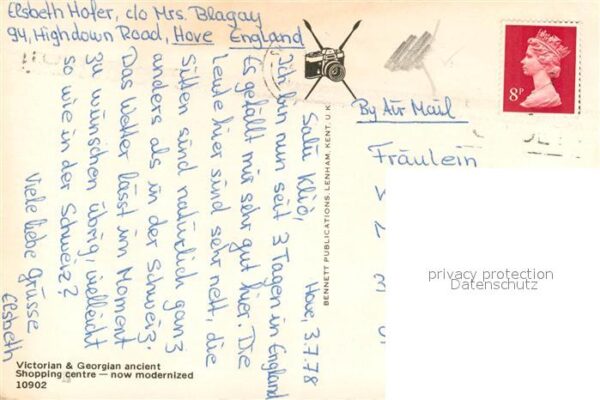 Elsbeth Hofer, c/o Mrs. Blagay
94, Highdown Road, Hove England
Hove, 3.7.78
Salü Kliö,
Ich bin nun seit 3 Tagen in England
Es gefällt mir sehr gut hier. Die
Leute hier sind sehr nett, die
Sitten sind natürlich ganz
anders als in der Schweiz.
Das Wetter lässt im Moment
zu wünschen übrig, vielleicht
so wie in der Schweiz?
Viele liebe Grüsse
Elsbeth
BENNETT PUBLICATIONS, LENHAM, KENT. U.K.
8P
By Air Mail
Fräulein
privacy protection
Datenschutz
Victorian & Georgian ancient
Shopping centre — now modernized
10902